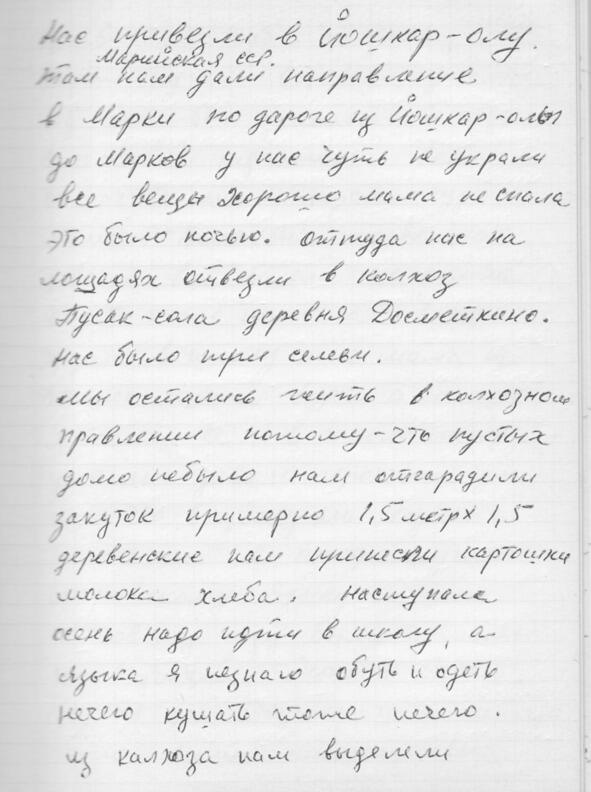 Нас привезли в Йошкар-олу.
Марийская сср.
там нам дали направление
в Марки по дароге из Йошкар-олы
до Марков у нас чуть не украли
все вещы хорошо мама не спала
это было ночью. оттуда нас на
лошадях отвезли в колхоз
Пусак-сола деревня Досметкино.
нас было три семьи.
мы остались жить в колхозном
правлении потому-что пустых
домо небыло нам отгарадили
закуток примерно 1,5 метрх 1,5
деревенские нам принесли картошки
молока хлеба. наступала
осень надо идти в школу, а
языка я незнаю обуть и одеть
нечего кушать тоже нечего.
из калхоза нам выделели